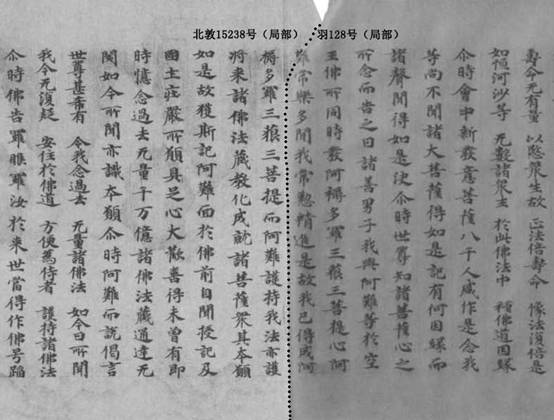 北敦15238号（局部） 羽128号（局部）
壽命无有量 以愍衆生故 正法倍壽命 像法復倍是
如恒河沙等 无數諸衆生 於此佛法中 種佛道因緣
尒時會中新發意菩薩八千人咸作是念我
等尚不聞諸大菩薩得如是記有何因緣而
諸聲聞得如是決尒時世尊知諸菩薩心之
所念而告之曰諸善男子我與阿難等於空
王佛所同時發阿耨多羅三藐三菩提心阿
難常樂多聞我常懃精進是故我已得成阿
耨多羅三藐三菩提而阿難護持我法亦護
將來諸佛法藏教化成就諸菩薩衆其本願
如是故獲斯記阿難面於佛前自聞授記及
國土莊嚴所願具足心大歡喜得未曾有即
時憶念過去无量千万億諸佛法藏通達无
閡如今所聞亦識本願尒時阿難而說偈言
世尊甚希有 令我念過去 无量諸佛法 如今日所聞
我今无復疑 安住於佛道 方便為侍者 護持諸佛法
尒時佛告羅睺羅汝於來世當得作佛号蹈